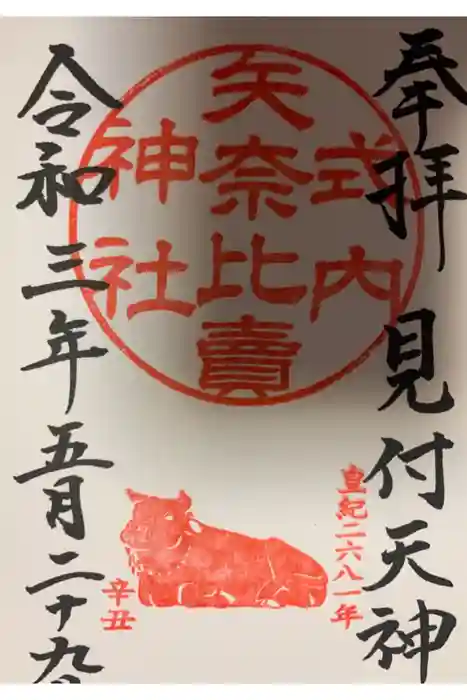 奉拝 見付天神
式内
矢奈比賣
神社
皇紀二六八一年
辛丑
令和三年五月二十九日